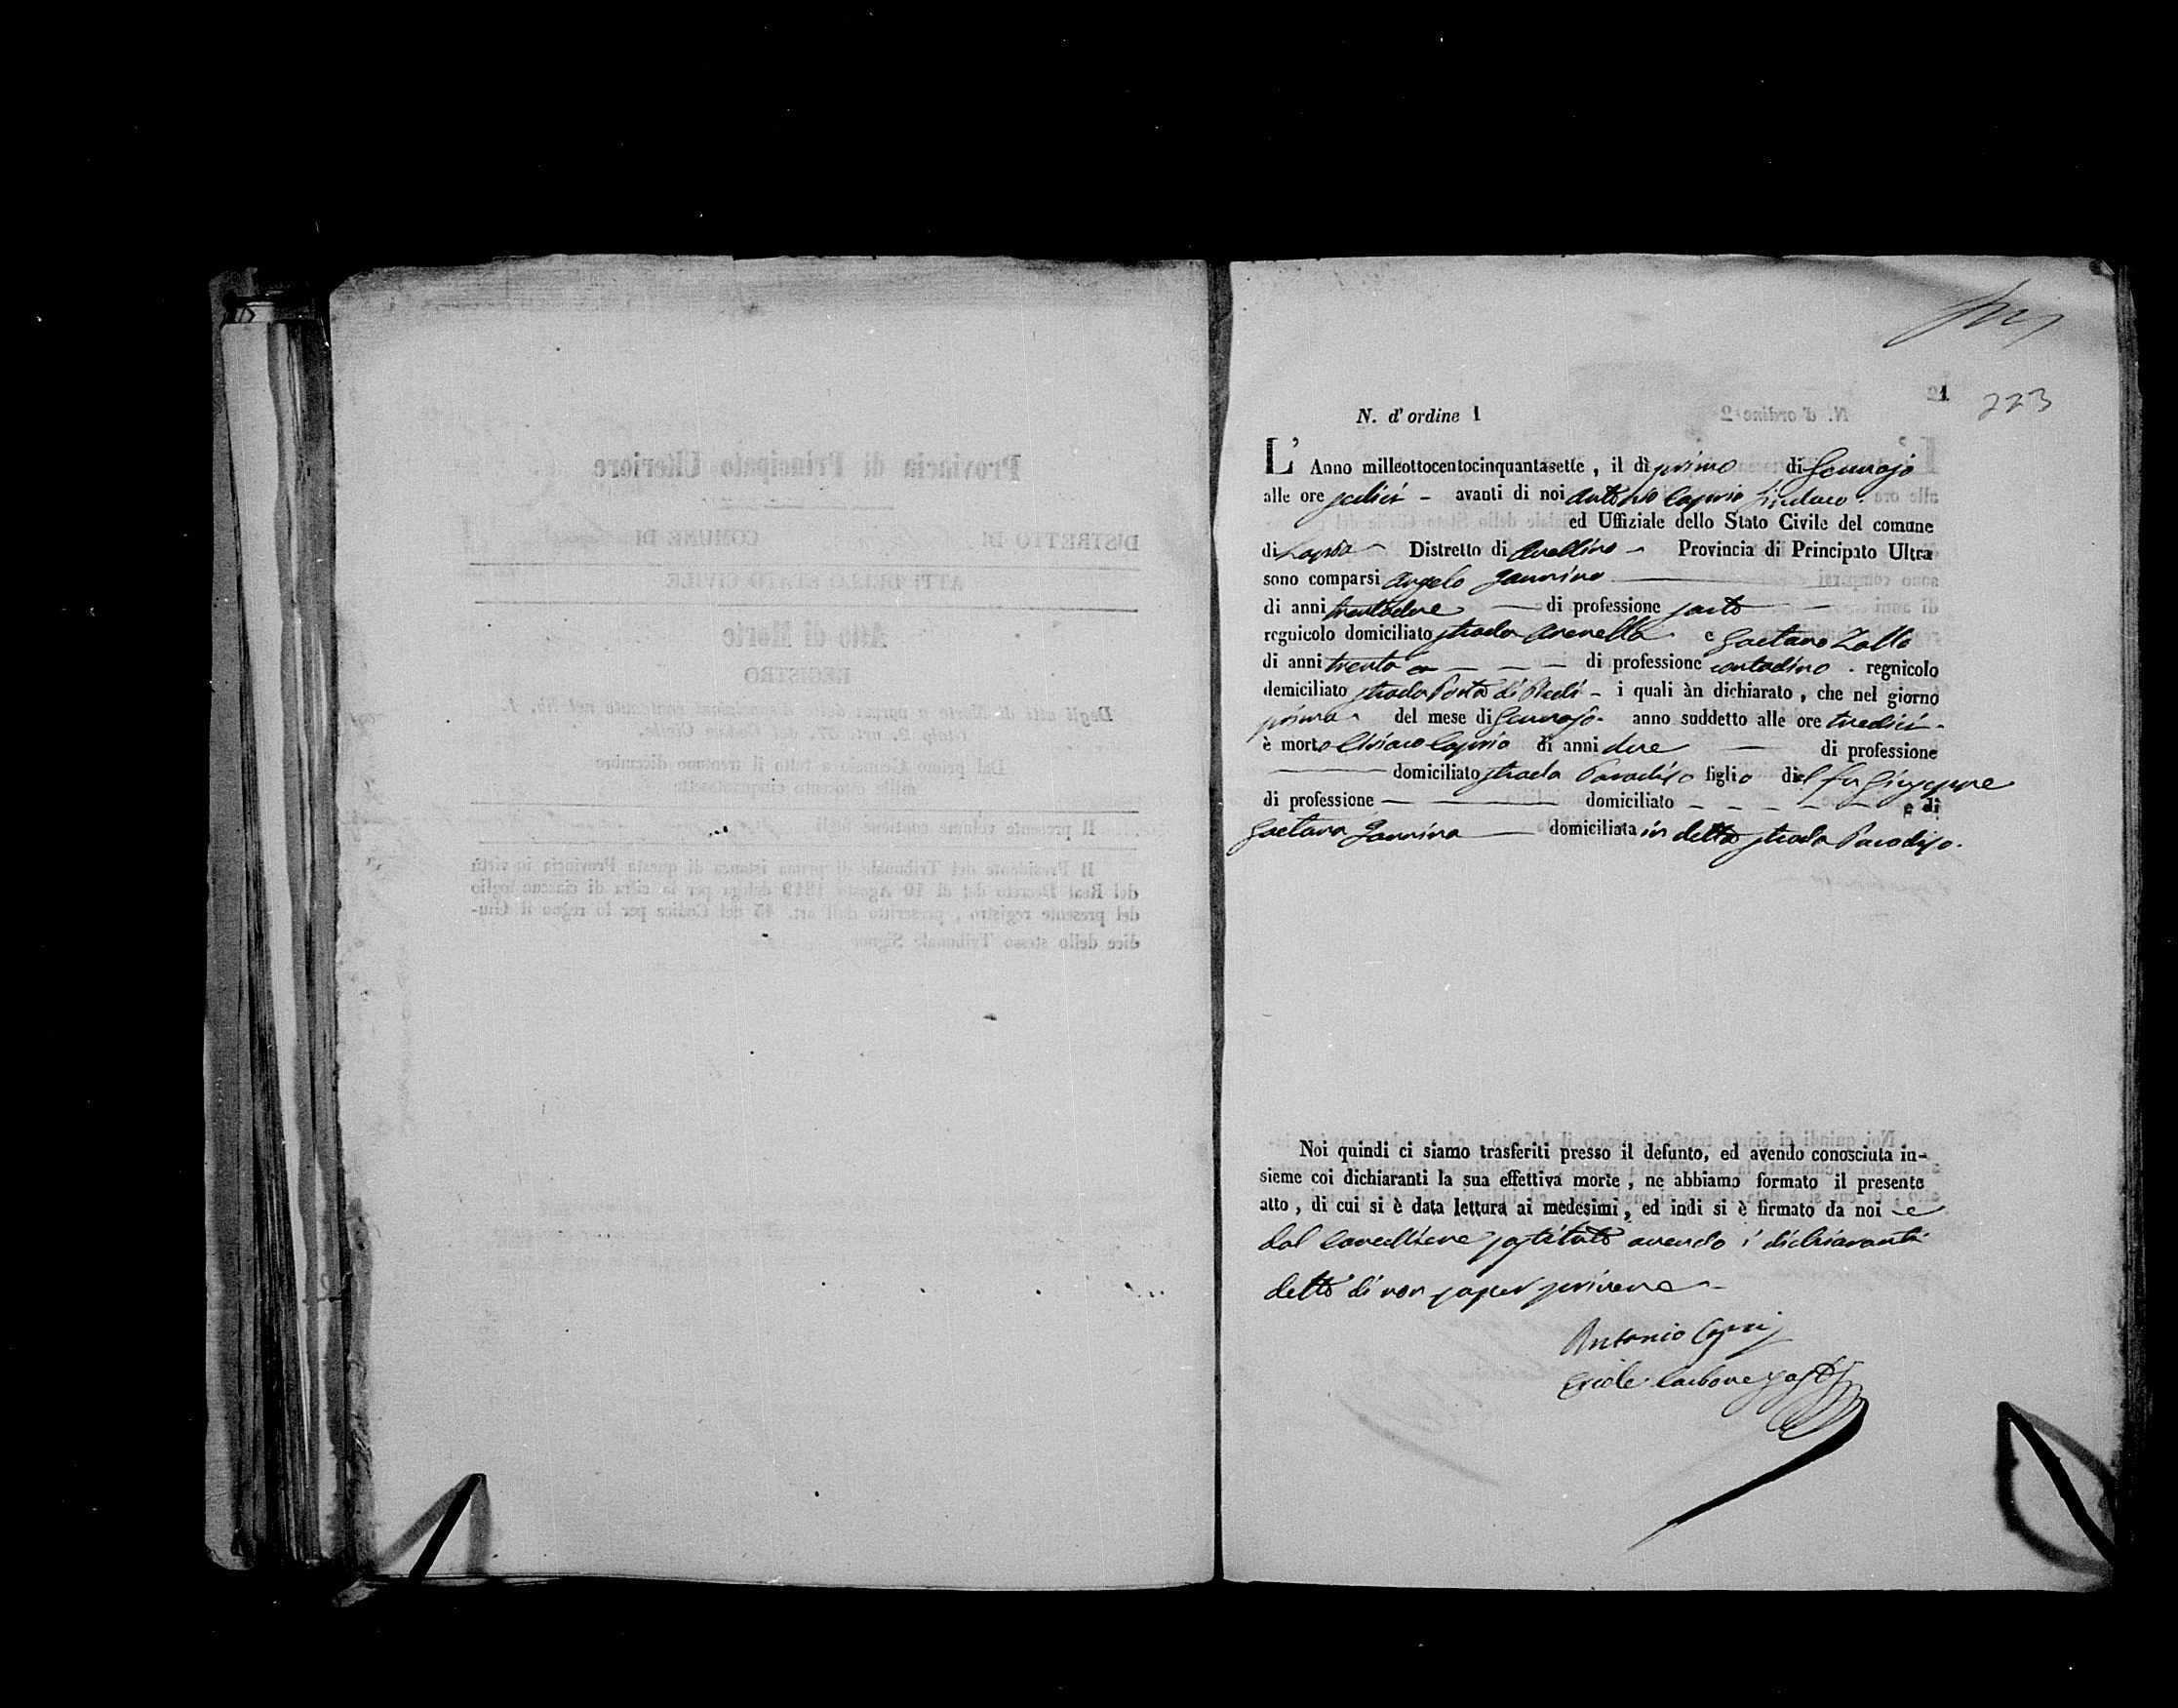 223
1
N. d' ordine 1
L' Anno milleottocentocinquantasette , il dì primo di Gennajo
alle ore sedici - avanti di noi Antonio Caprio Sindaco
ed Uffiziale dello Stato Civile del comune
di Distretto di Avellino - Provincia di Principato Ultra
sono comparsi Angelo Iannino
di anni trentadue di professione sarto
regnicolo domiciliato strada e Gaetano Zollo
di anni trenta di professione contadino . regnicolo
demiciliato strada - i quali àn dichiarato , che nel giorno
primo del mese di Gennajo anno suddetto alle ore tredici -
è morto Ciriaco Caprio di anni due di professione
domiciliato strada Paradiso figlio del fu Giuseppe
di professione domiciliato e di
Gaetana Iannino domiciliata in detta strada Paradiso.
Noi quindi ci siamo trasferiti presso il defunto, ed avendo conosciuta in-
sieme coi dichiaranti la sua effettiva morte , ne abbiamo formato il presente
atto , di cui si è data lettura ai medesimi , ed indi si è firmato da noi e
dal Cancelliere sostituto avendo i dichiaranti
detto di non saper scrivere
Antonio Caprio
Carbone sost
Provincia di Principato Ulteriore
DISTRETTO DI COMUNE DI
ATTI DELLO STATO CIVILE
Atto di Morte
REGISTRO
Dal primo Gennaio a tutto il trentuno dicembre
mille ottocento cinquantasette
Il presente volume contiene fogli
Il Presidente del Tribunale di prima istanza di questa Provincia in virtù
del Real Decreto del dì 10 Agosto 1819 delega per la cifra di ciascun foglio
del presente registro , prescritto dall' art. 45 del Codice per lo regno il Giu-
dice dello stesso Tribunale Signor